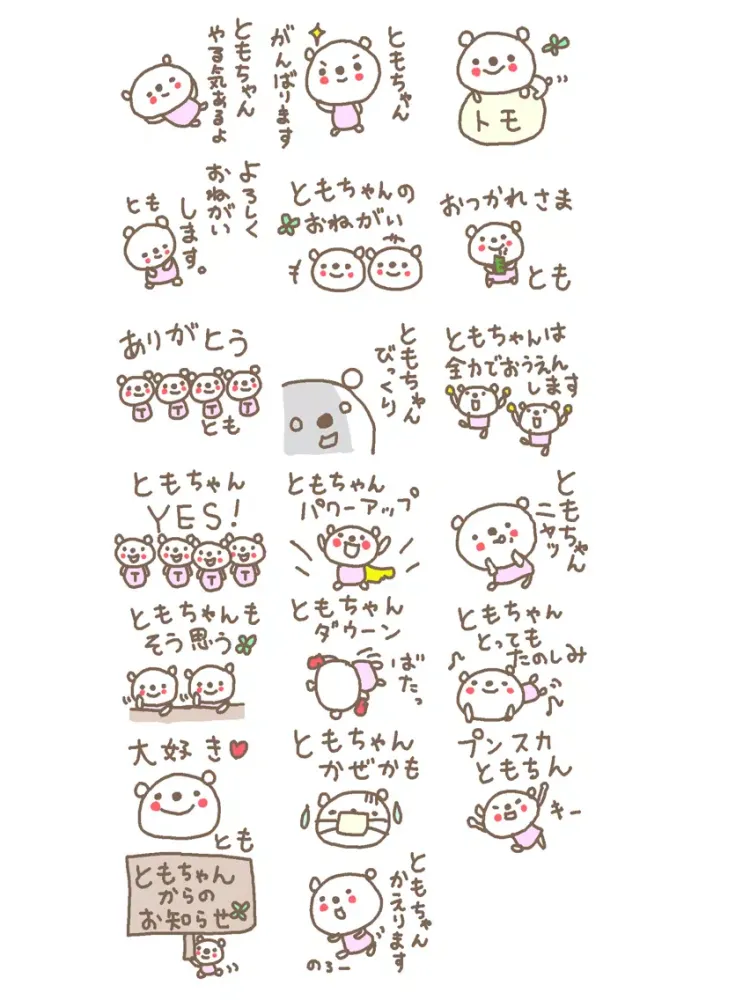 ともちゃん
やる気あるよ
ともちゃん
がんばります
トモ
よろしく
おねがい
します。
とも
ともちゃんの
おねがい
も
おつかれさま
とも
ありがとう
T T T T
とも
ともちゃん
びっくり
ともちゃんは
全力でおうえん
します
ともちゃん
YES!
T T T T
ともちゃん
パワーアップ
ともちゃん
ニヤッ
ともちゃんも
そう思う
ともちゃん
ダウーン
ばたっ
ともちゃん
とっても
たのしみ
大好き
とも
ともちゃん
かぜかも
プンスカ
ともちん
キー
ともちゃん
からの
お知らせ
ともちゃん
かえります
のろー